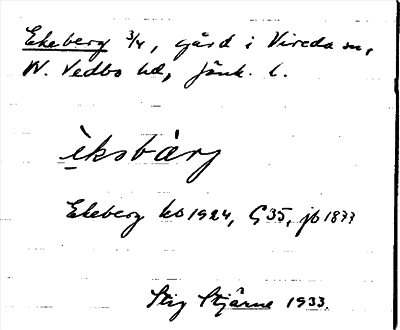 Ekeberg 3/4, gård i Vireda sn,
N. Vedbo hd, Jönk. l.
èksbàrj
Ekeberg ks 1924, G 35, jb 1877
Stig Stjärne 1933.